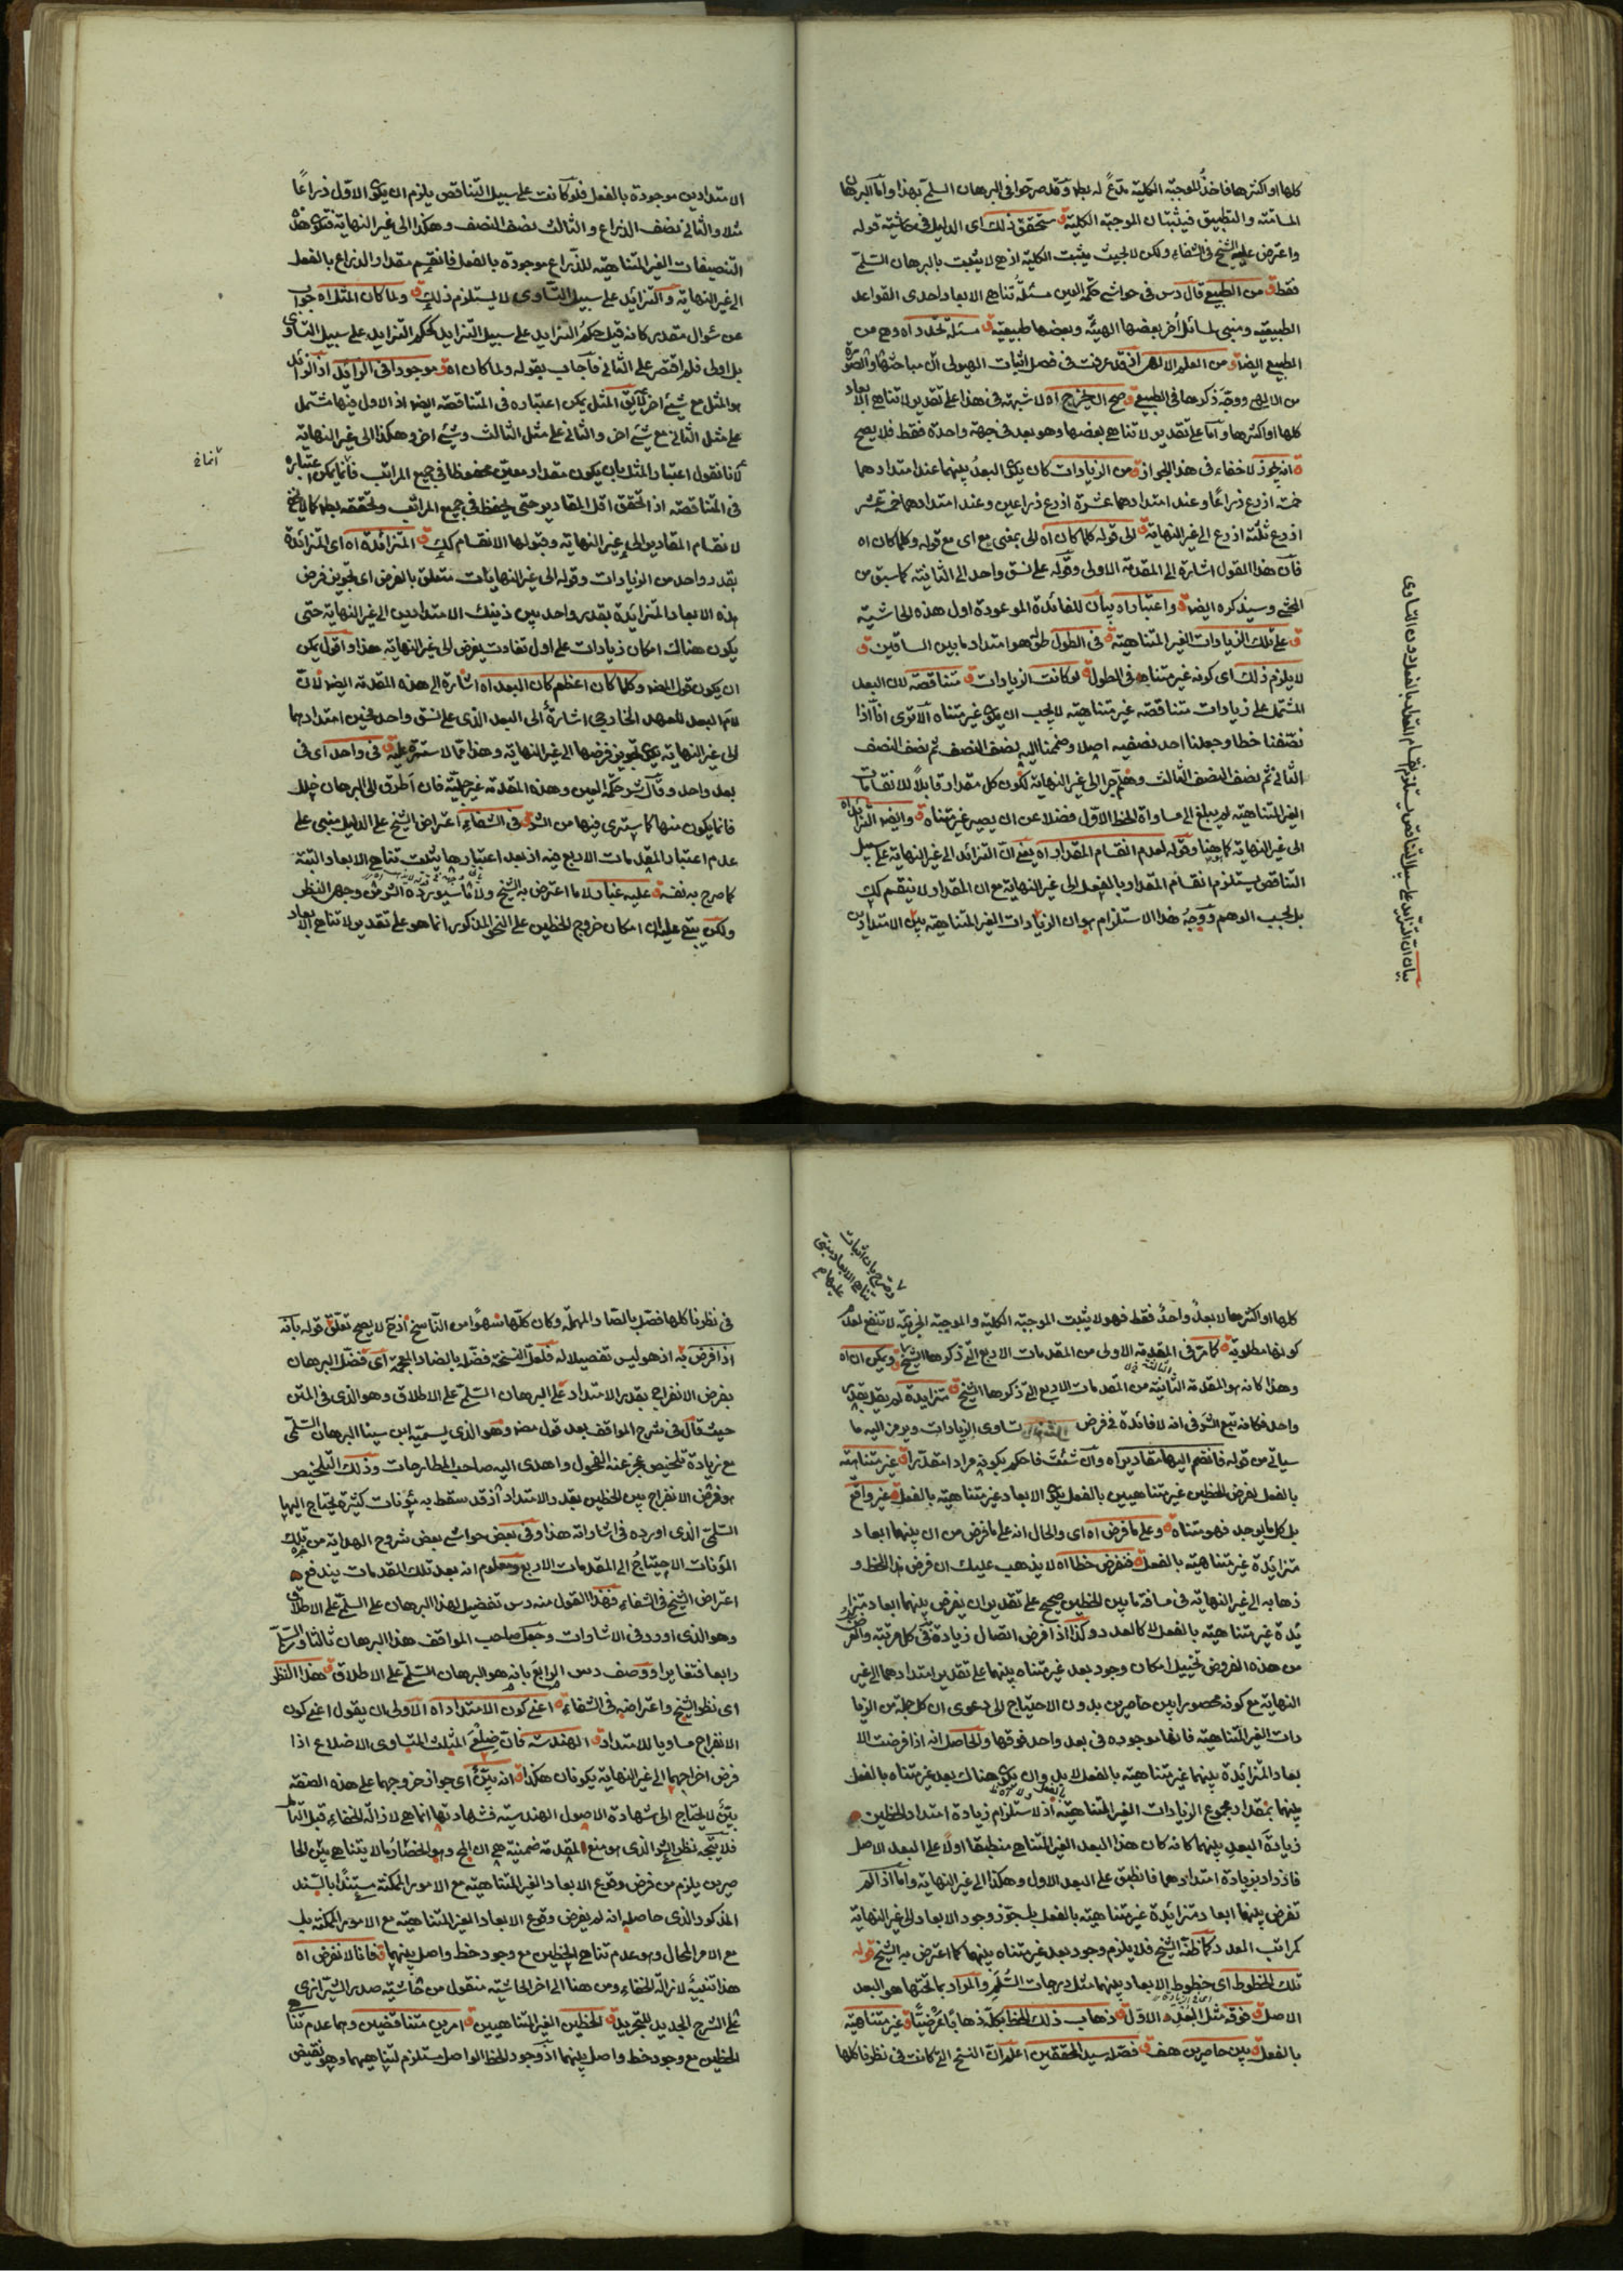 كلها او اكثرها فاخذ الموجبة الكلية مدعى له بط وقد صرحوا في البرهان السلمي بهذا واما البرهان
المسامتة والتطبيق فيثبتان الموجبة الكلية ق ستحقق ذلك اى الدليل في حاشية قوله
واعترض عليه الشيخ في الشفاء ولكن لا بحيث يثبت الكلية اذ هى لا يثبت بالبرهان السلمى
فقط ق من الطبيعى قال دس في حواشى حكمة العين مسئلة تناهى الابعاد احدى القواعد
الطبيعية ومبنى لمسائل أخر بعضها الهيئة وبعضها طبيعية ق مسئلة تحدد اه وهى من
الطبيعى ايضا ق من العلم الالهى اذ قد عرفت في فصل اثبات الهيولى ان مباحثها والصورة
من الالهى ووجه ذكرها في الطبيعى ق صح الخ خرج اه لا شبهة في هذا على تقدير لا تناهى الابعاد
كلها او اكثرها واما على تقدير لا تناهى بعضها وهو بعد في جهة واحدة فقط فلا يصح
ق انه يجوز لا خفاء في هذا الجواز ق من الزيادات كان يكون البعد بينهما عند امتدادهما
خمسة اذرع ذراعا وعند امتدادهما عشرة اذرع ذراعين وعند امتدادهما خمسة عشر
اذرع ثلثة اذرع الى غير النهاية ق الى قوله كلما كان اه الى بمعنى مع اى مع قوله وكلما كان اه
فان هذا القول اشارة الى المقدمة الاولى وقوله على نسق واحد الى الثانية كما سبق من
المحشى وسيذكره ايضا ق واعتبار اه بيان للفائدة الموعودة اول هذه الحاشية
ق على تلك الزيادات الغير المتناهية ق في الطول طوله هو امتداد ما بين الساقين ق
لا يلزم ذلك اى كونه غير متناه في الطول ق لو كانت الزيادات ق متناقصة لان البعد
المشتمل على زيادات متناقصة غير متناهية لا يجب ان يكون غير متناه الا ترى انا اذا
نصفنا خطا وجعلنا احد نصفيه اصلا وضممنا اليه نصف النصف ثم نصف النصف
الثانى ثم نصف النصف الثالث وهلم جرا الى غير النهاية لكون كل مقدار قابلا للانقسامات
الغير المتناهية لم يبلغ الى مساواة الخط الاول فضلا عن ان يصير غير متناه ق وايضا التزايد اه
الى غير النهاية كما هنا وقوله لعدم انقسام المقدار اه يعنى ان التزائد الى غير النهاية على سبيل
التناقص يستلزم انقسام المقدار بالفعل الى غير النهاية مع ان المقدار لا ينقسم كك
بل بحسب الوهم ووجه هذا الاستلزام هو ان الزيادات الغير المتناهية بين الامتدادين
بيان ان التزايد على سبيل التناقص يستلزم انقسام المقدار بالفعل دون التساوى
الامتدادين موجودة بالفعل فلو كانت على سبيل التناقص يلزم ان يكون الاول ذراعا
مثلا والثانى نصف الذراع والثالث نصف النصف وهكذا الى غير النهاية فتكون هذه
التنصيفات الغير المتناهية للذراع موجودة بالفعل فانقسم مقدار الذراع بالفعل
الى غير النهاية والتزائد على سبيل التساوى لا يستلزم ذلك ق ولما كان المثل اه جواب
عن سؤال مقدر كانه قيل حكم التزايد على سبيل التزايد كحكم التزايد على سبيل التساوى
بل اولى فلم اقتصر على الثانى فاجاب بقوله ولما كان اه ق موجودا في الزائد اذ الزائد
هو المثل مع شئ اخر لا يق المثل يمكن اعتباره في المتناقصة ايضا اذ الاول فيها مشتمل
على مثل الثانى مع شئ اخر والثانى على مثل الثالث وشئ اخر وهكذا الى غير النهاية
لانا نقول اعتبار المثل بان يكون مقدار معين محفوظا في جميع المراتب فانما يمكن اعتباره
في المتناقصة اذا تحقق اقل المقادير حتى يحفظ في جميع المراتب وتحققه بط كما لا يخفى
لانقسام المقادير الى غير النهاية وقبولها الانقسام كك ق المتزائدة اه اى المتزائدة
بقدر واحد من الزيادات وقوله الى غير النهايات متعلق بالفرض اى تجويز فرض
هذه الابعاد المتزايدة بقدر واحد بين ذينك الامتدادين الى غير النهاية حتى
يكون هناك امكان زيادات على اول تفاوت يفرض الى غير النهاية هذا واقول يمكن
ان يكون قول المص وكلما كان اعظم كان البعد اه اشارة الى هذه المقدمة ايضا لان
لام البعد للعهد الخارجى اشارة الى البعد الذى على نسق واحد فحين امتدادهما
الى غير النهاية يكون تجويز فرضها الى غير النهاية وهذا مما لا سترة عليه ق في واحد اى في
بعد واحد وقال شر حكمة العين وهذه المقدمة غير جلية فان أطرق الى البرهان خلل
فانما يكون منها كما سترى فيها من الشر ق في الشفاء اعتراض الشيخ على الدليل مبنى على
عدم اعتبار المقدمات الاربع فيه اذ بعد اعتبارها يثبت تناهى الابعاد البتة
كما صرح به نفسه ق عليه غبار لا ما اعترض به الشيخ ولا ما سيورده الشر وجهر النظر
ولكن يتجه عليه ان امكان خروج الخطين على النحو المذكور انما هو على تقدير لا تناهى الابعاد
كلها او اكثرها لا بعد واحد فقط فهو لا يثبت الموجبة الكلية والموجبة الجزئية لا تنفع لعدم
كونها مطلوبة ق كما مر في المقدمة الاولى من المقدمات الاربع التى ذكرها الشيخ ق ويمكن ان اه
وهذا كانه هو المقدمة الثانية من المقدمات الاربع التى ذكرها الشيخ ق متزايدة لم يقل بقدر
واحد فكانه تبع الشر في انه لا فائدة في فرض تساوى الزيادات ويرمز اليه ما
سياتى من قوله فانضم اليها مقادير اه وان شئت فاحكم بكونه مرادا مقدرا ق غير متناهية
بالفعل بفرض الخطين غير متناهيين بالفعل يكون الابعاد غير متناهية بالفعل ق غير واقع
بل كل ما يوجد فهو متناه ق وعلى ما فرض اه اى والحال انه على ما فرض من ان بينهما ابعاد
متزائدة غير متناهية بالفعل ق فنفرض خطا اه لا يذهب عليك ان فرض هذا الخط و
ذهابه الى غير النهاية في مسافة ما بين الخطين صحيح على تقدير ان يفرض بينهما ابعاد متزا
ئدة غير متناهية بالفعل لا كالعدد وكذا اذا فرض اتصال زيادة في كل مرتبة والغرض
من هذه الفروض تخييل امكان وجود بعد غير متناه بينهما على تقدير امتدادهما الى غير
النهاية مع كونه محصورا بين حاصرين بدون الاحتياج الى دعوى ان كل جملة من الزيا
دات الغير المتناهية فانها موجوده في بعد واحد فوقها والحاصل انه اذا فرضت الا
بعاد المتزائدة بينهما غير متناهية بالفعل لا بد وان يكون هناك بعد غير متناه بالفعل
بينهما بمقدار مجموع الزيادات الغير المتناهية اذ لاستلزام زيادة امتداد الخطين
زيادة البعد بينهما كانه كان هذا البعد الغير المتناهى منطبقا اولا على البعد الاصل
فازداد بزيادة امتدادهما فانطبق على البعد الاول وهكذا الى غير النهاية واما اذا لم
تفرض بينهما ابعاد متزائدة غير متناهية بالفعل بل جوز وجود الابعاد الى غير النهاية
كمراتب العدد كما ظنه الشيخ فلا يلزم وجود بعد غير متناه بينهما كما اعترض به الشيخ قوله
تلك الخطوط اى خطوط الابعاد بينهما مثل درجات السلم والمراد بما تحتها هو البعد
الاصل ق فوقه مثل البعد الاول ق ذهاب ذلك الخط بكله ذهابا عرضيا ق غير متناهية
بالفعل ق بين حاصرين هف ق فصله سيد المحققين اعلم ان النسخ التى كانت في نظرنا كلها
في نظرنا كلها فصل بالصاد المهملة وكان كلها سهوا من الناسخ اذ ح لا يصح تعلق قوله بانه
اذا فرض به اذ هو ليس تفصيلا له فلعل النسخة فضله بالضاد المعجمة اى فضل البرهان
بفرض الانفراج بقدر الامتداد على البرهان السلمى على الاطلاق وهو الذى في المتن
حيث قال في شرح المواقف بعد قول مص وهو الذى يسميه ابن سينا البرهان السلمى
مع زيادة تلخيص عجز عنه الفحول واهدى اليه صاحب المطارحات وذلك التلخيص
هو فرض الانفراج بين الخطين بقدر الامتداد اذ قد سقط به مؤنات كثيرة يحتاج اليها
السلمى الذى اورده في اشاراته هذا وفي بعض حواشى بعض شروح الهداية من تلك
المؤنات الاحتياج الى المقدمات الاربع ومعلوم انه بعد تلك المقدمات يندفع
اعتراض الشيخ في الشفاء فهذا القول منه دس تفضيل لهذا البرهان على السلمى على الاطلاق
وهو الذى اورد في الاشارات وجعل صاحب المواقف هذا البرهان ثالثا والسلمى
رابعا فتغايرا ووصف دس الرابع بانه هو البرهان السلمى على الاطلاق ق هذا النظر
اى نظر الشيخ واعتراضه في الشفاء ق اعنى كون الامتداد اه الاولى ان يقول اعنى كون
الانفراج مساويا للامتداد ق الهندسة فان ضلعى المثلث المتساوى الاضلاع اذا
فرض اخراجهما الى غير النهاية يكونان هكذا ق انه بين اى جواز خروجهما على هذه الصفة
بين لا يحتاج الى شهادة الاصول الهندسية فشهادتها انما هى لازالة الخفاء قبل التأمل
فلا يتجه نظر الشر الذى هو منع المقدمة ضمنية هى ان المح وهو انحصار ما لا يتناهى بين الحا
صرين يلزم من فرض وقوع الابعاد الغير المتناهية مع الامور الممكنة مستندا بالسند
المذكور الذى حاصله انه لم يفرض وقوع الابعاد الغير المتناهية مع الامور الممكنة بل
مع الامر المحال وهو عدم تناهى الخطين مع وجود خط واصل بينهما ق فانا لا نفرض اه
هذا تنبيه لازالة الخفاء ومن هنا الى اخر الحاشية منقول من حاشية صدر الشيرازى
على الشرح الجديد للتجريد ق الخطين الغير المتناهيين ق امرين متناقضين وهما عدم تناهى
الخطين مع وجود خط واصل بينهما اذ وجود الخط الواصل مستلزم لتناهيهما وهو نقيض